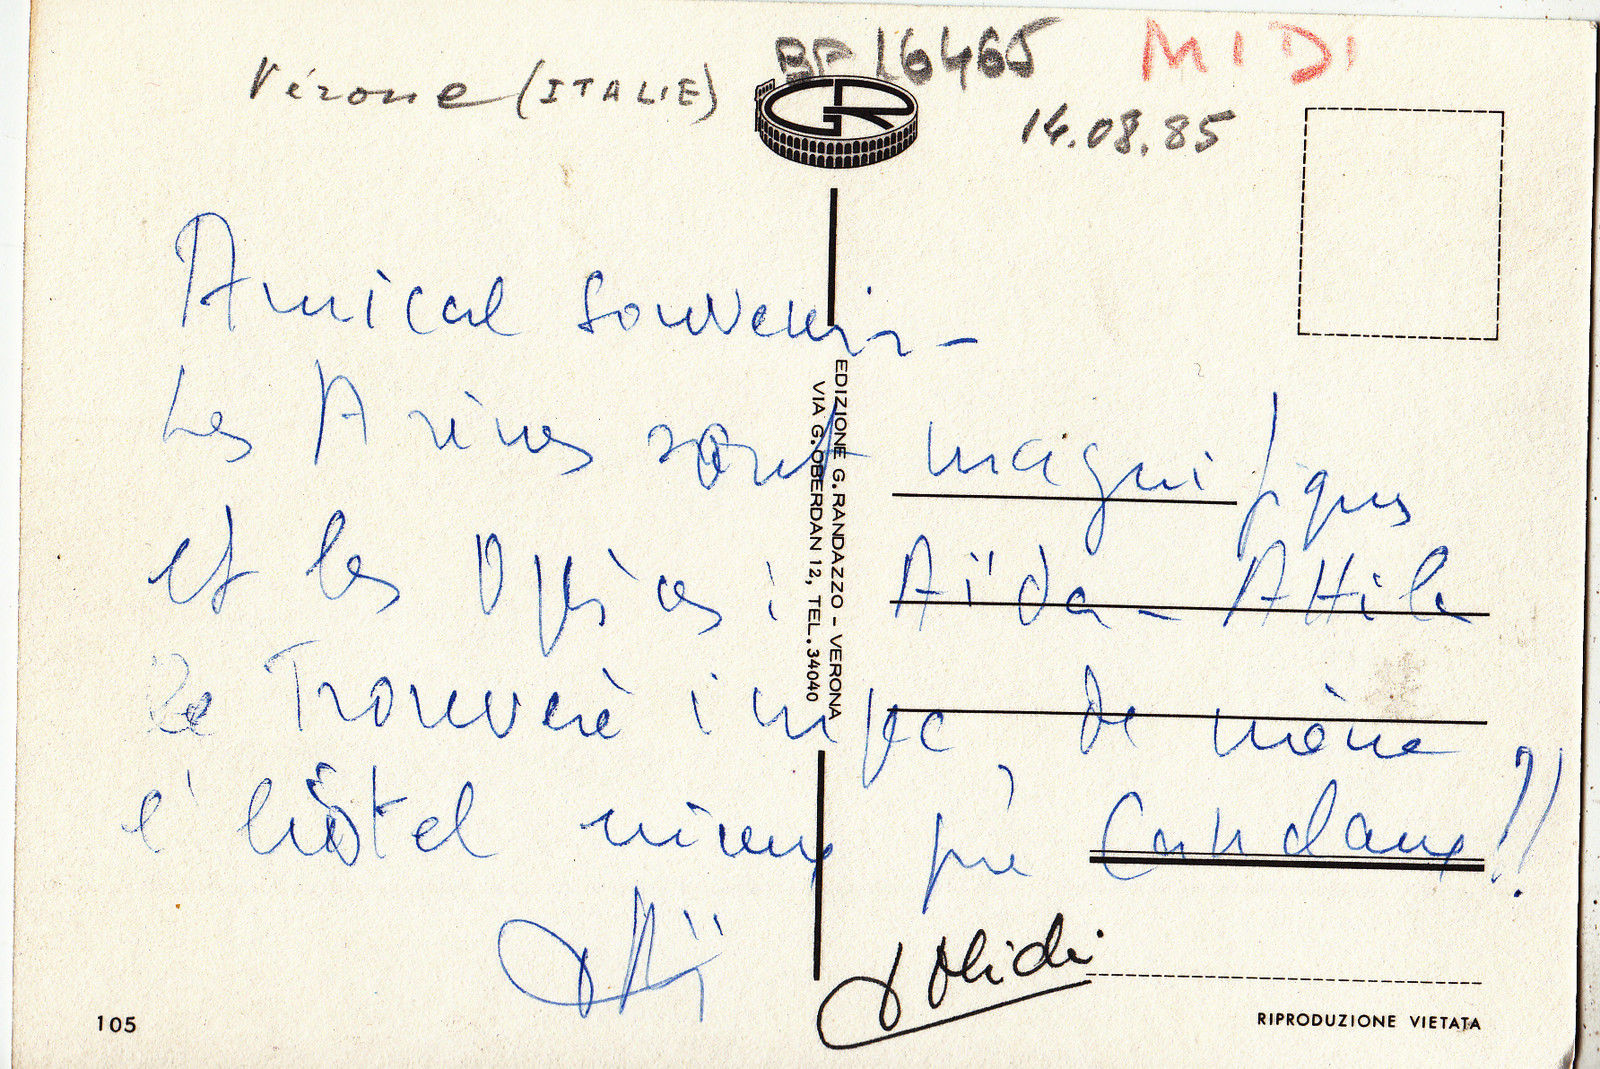 Vérone (ITALIE)
BF 16465
MIDI
14.08.85
GR
Amical Souvenir -
Les Arènes sont magnifiques
et les Opéras : Aïda - Attila
Le Trouvère impec, de même
l'hôtel mieux que
!!
Midi
EDIZIONE G. RANDAZZO - VERONA
VIA G. OBERDAN 12, TEL. 34040
105
RIPRODUZIONE VIETATA